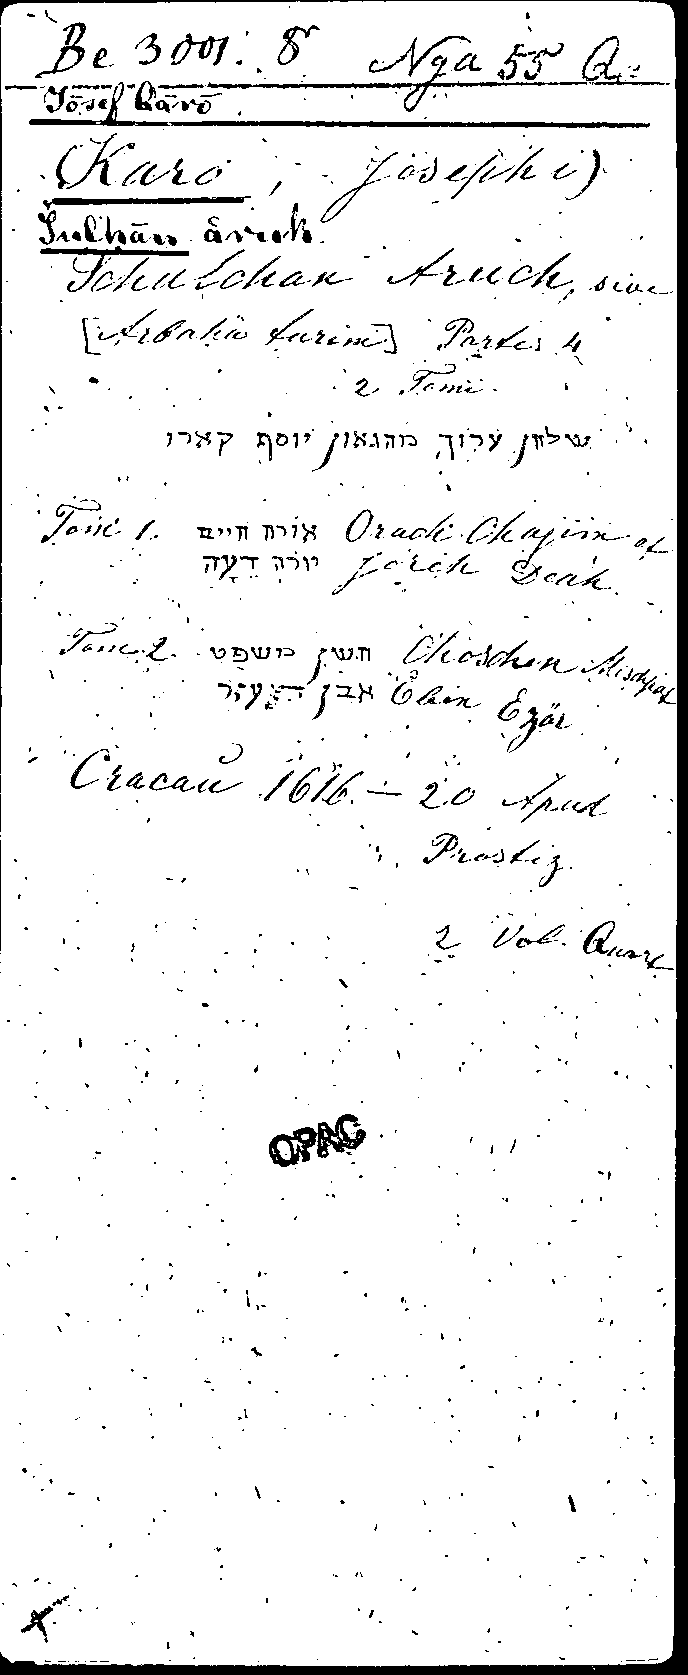 Be 3001. 8 Nga 55 Qu
Jōsef Qārō
Karo, Josephi)
Šulḥān ārūk.
Schulchan Aruch, sive
[Arbahä turim] Partes 4
2 Tomi.
שלחן ערוך מהגאון יוסף קארו
Tom. 1. אורח חיים Orach Chajim et
יורה דֵעָה Jöreh Deah.
Tom. 2. חשן משפט Choschen Mischpat
אבן העזר Eben Ezär
Cracau 1616.—20 Apud
Prostiz.
2 Vol. Quart
OPAC